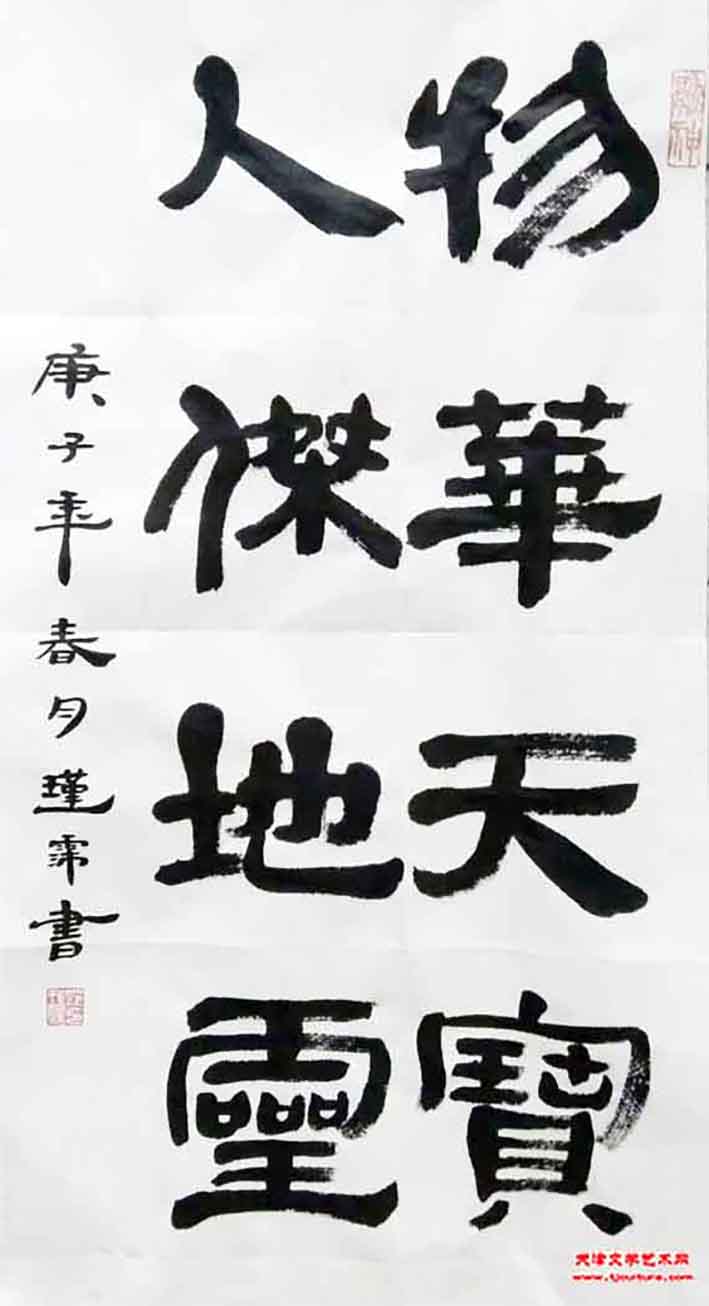 物華天寶
人傑地靈
庚子年春月瑾霈書
天津文学艺术网